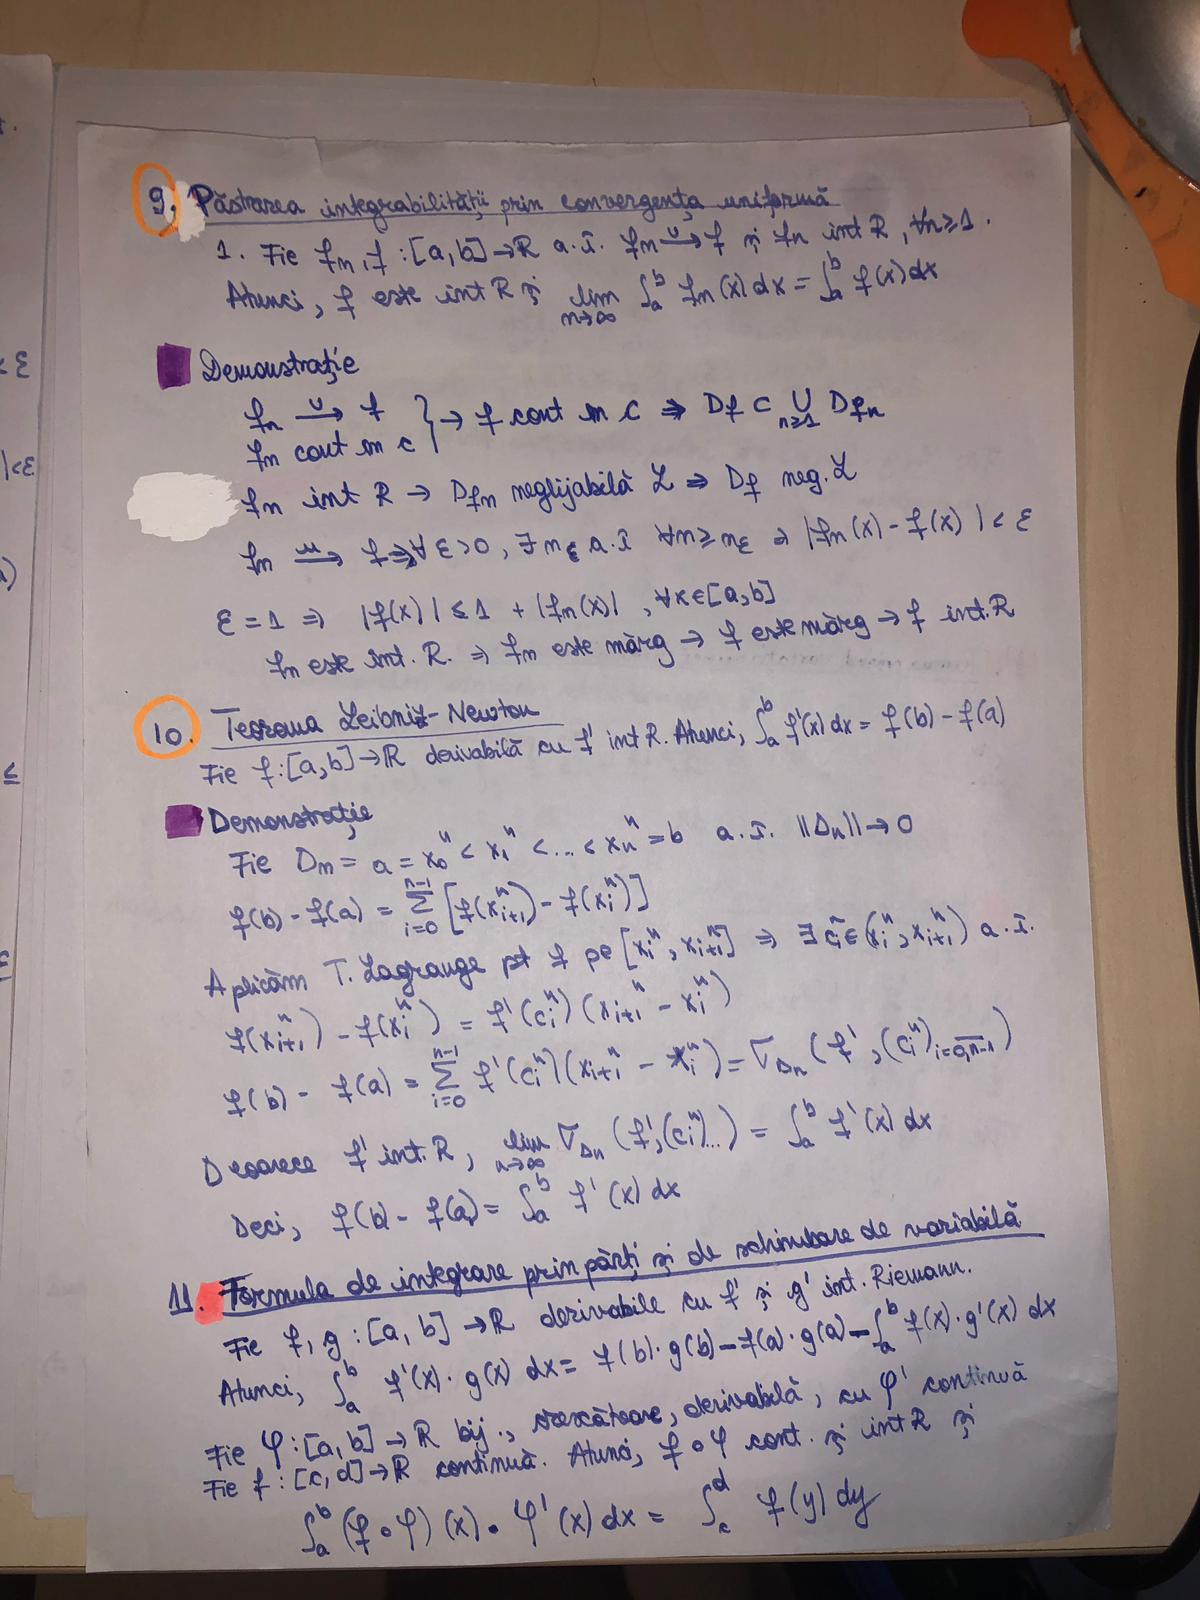 9. Păstrarea integrabilității prin convergența uniformă
1. Fie fn, f : [a,b] → R a.î. fn →ᵘ f și fn int R, ∀n≥1.
Atunci, f este int R și lim n→∞ ∫ₐᵇ fn(x)dx = ∫ₐᵇ f(x)dx
Demonstrație
fn →ᵘ f
fn cont în c } → f cont în c ⇒ Df ⊂ ∪ n≥1 Dfn
fn int R → Dfn neglijabilă L ⇒ Df neg. L
fn →ᵘ f ⇒ ∀ ε>0, ∃ nε a.î ∀n≥nε ⇒ |fn(x) - f(x)| < ε
ε = 1 ⇒ |f(x)| ≤ 1 + |fn(x)|, ∀x∈[a,b]
fn este int. R. ⇒ fn este mărg → f este mărg → f int.R
10. Teorema Leibniz-Newton
Fie f:[a,b]→R derivabilă cu f' int R. Atunci, ∫ₐᵇ f'(x)dx = f(b) - f(a)
Demonstrație
Fie Dn = a = x₀ⁿ < x₁ⁿ < ... < xₙⁿ = b a.î. ||Δn|| → 0
f(b) - f(a) = Σ i=0 n-1 [f(xᵢ₊₁ⁿ) - f(xᵢⁿ)]
Aplicăm T. Lagrange pt f pe [xᵢⁿ, xᵢ₊₁ⁿ] ⇒ ∃ cᵢⁿ ∈ (xᵢⁿ, xᵢ₊₁ⁿ) a.î.
f(xᵢ₊₁ⁿ) - f(xᵢⁿ) = f'(cᵢⁿ) (xᵢ₊₁ⁿ - xᵢⁿ)
f(b) - f(a) = Σ i=0 n-1 f'(cᵢⁿ)(xᵢ₊₁ⁿ - xᵢⁿ) = σΔn (f', (cᵢⁿ) i=0,n-1)
Deoarece f' int.R, lim n→∞ σΔn (f',(cᵢⁿ)...) = ∫ₐᵇ f'(x) dx
Deci, f(b) - f(a) = ∫ₐᵇ f'(x) dx
11. Formula de integrare prin părți și de schimbare de variabilă
Fie f, g : [a,b] → R derivabile cu f' și g' int. Riemann.
Atunci, ∫ₐᵇ f'(x)·g(x) dx = f(b)·g(b) - f(a)·g(a) - ∫ₐᵇ f(x)·g'(x) dx
Fie φ:[a,b] → R bij., crescătoare, derivabilă, cu φ' continuă
Fie f:[c,d]→R continuă. Atunci, f∘φ cont. și int R și
∫ₐᵇ (f∘φ)(x)·φ'(x)dx = ∫ c d f(y)dy